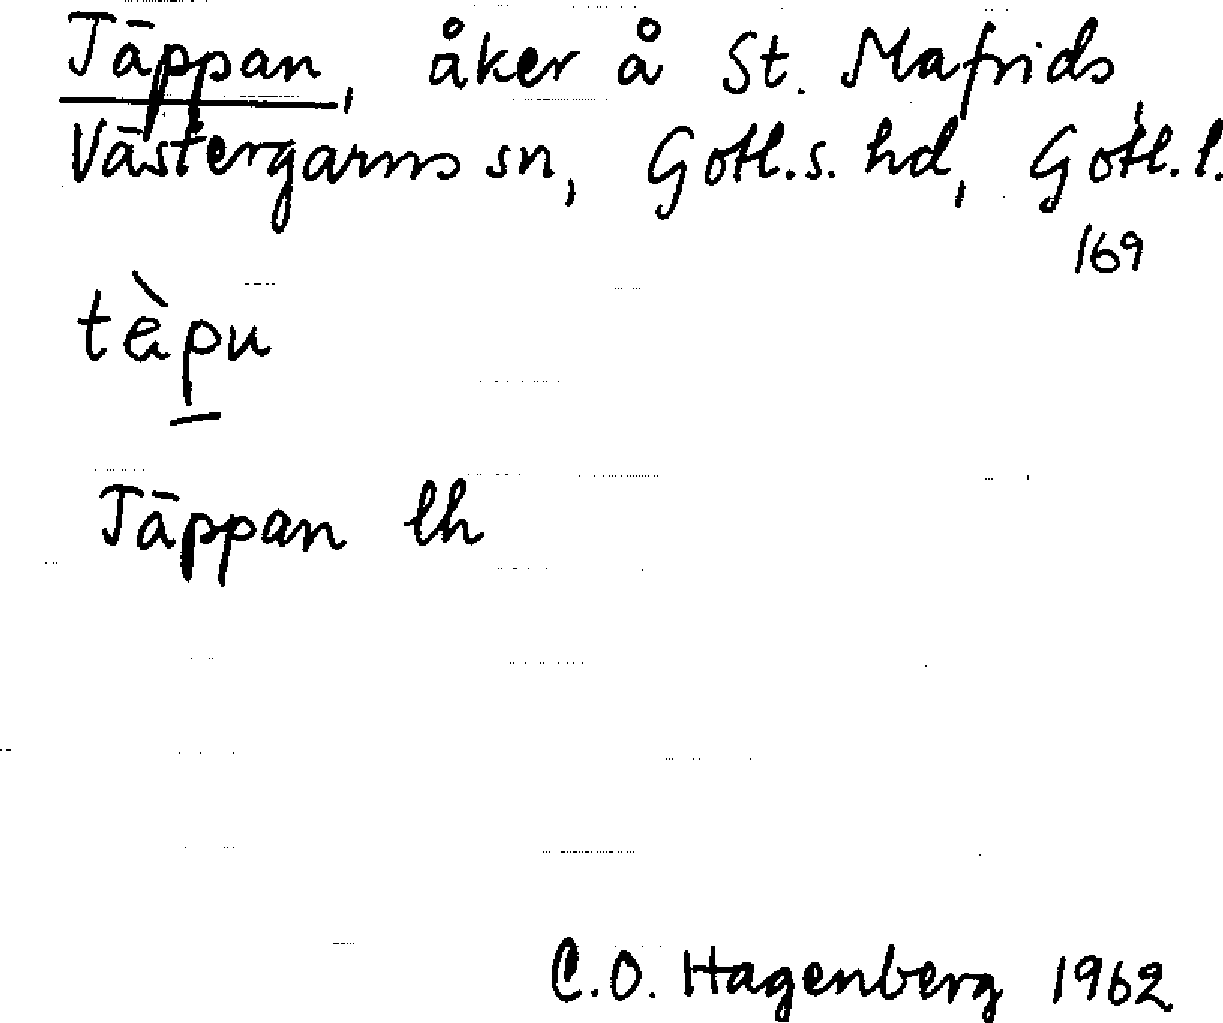 Täppan, åker å St. Mafrids,
Västergarns sn, Gotl.s. hd, Gotl. l.
169
tèpu
Täppan lh
C.O. Hagenberg 1962